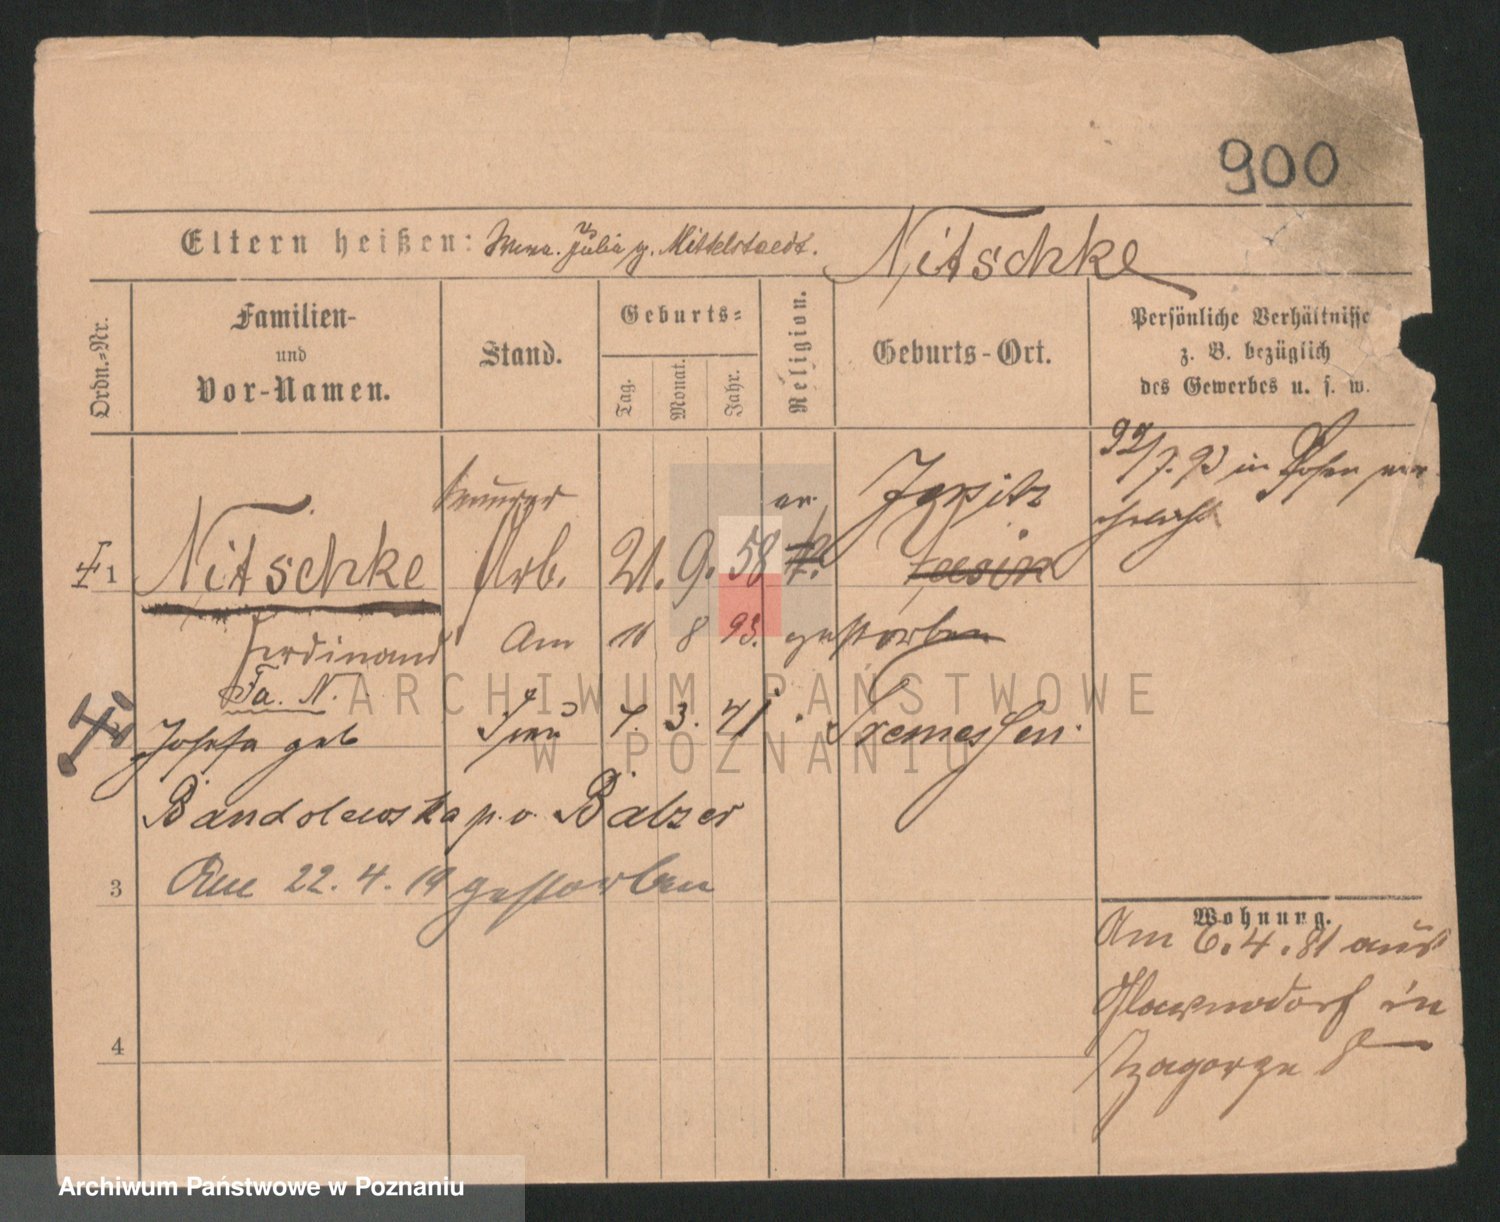 900
Eltern heißen: Julia g. Mittelstaedt. Nitschke
Ordn.-Nr.
Familien-
und
Vor-Namen.
Stand.
Geburts-
Tag.
Monat.
Jahr.
Religion.
Geburts-Ort.
Persönliche Verhältnisse
z. B. bezüglich
des Gewerbes u. s. w.
7. 93 in Posen ver
ehelicht
1 Nitschke Arb. 21. 9. 58
Ferdinand Am 11 8 93. gestorben
Fa. N.
Josefa geb Frau 7. 3. 41 Tremessen.
Bandolewska p. v. Balzer
3 Am 22. 4. 19 gestorben
4
Wohnung.
Am 6. 4. 81 aus
in
Zagorze 8
ARCHIWUM PAŃSTWOWE
W POZNANIU
Archiwum Państwowe w Poznaniu